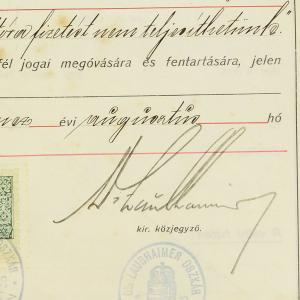 óra fizetést nem teljesíthetünk."
fél jogai megóvására és fentartására, jelen
évi augusztus hó
Dr Laubhaimer
kir. közjegyző.
DR LAUBHAIMER OSZKÁR